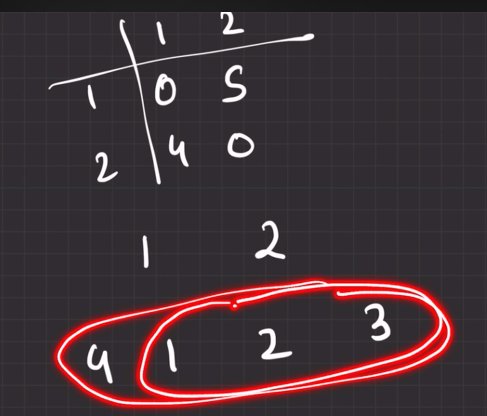 1 2
1 0 5
2 4 0
1 2
4 1 2 3